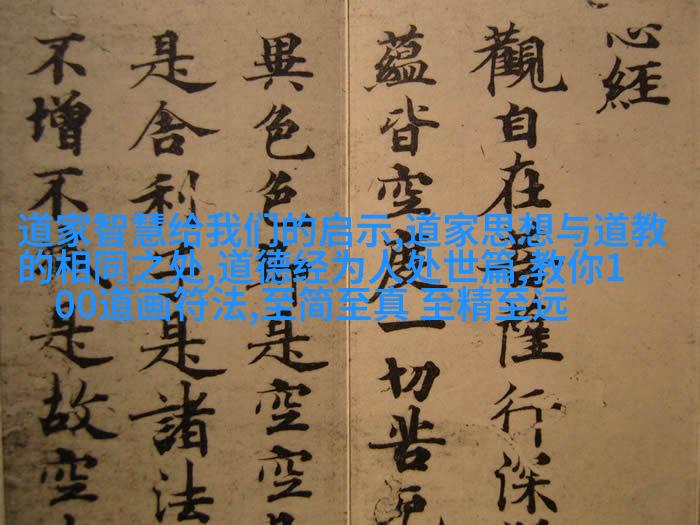 道家智慧给我们的启示,道家思想与道教
的相同之处,道德经为人处世篇,教你1
00道画符法,至简至真 至精至远
心經
觀自在菩薩行深
蘊皆空度一切苦厄
異色色即是空空
是舍利子是諸法
不增不減是故空